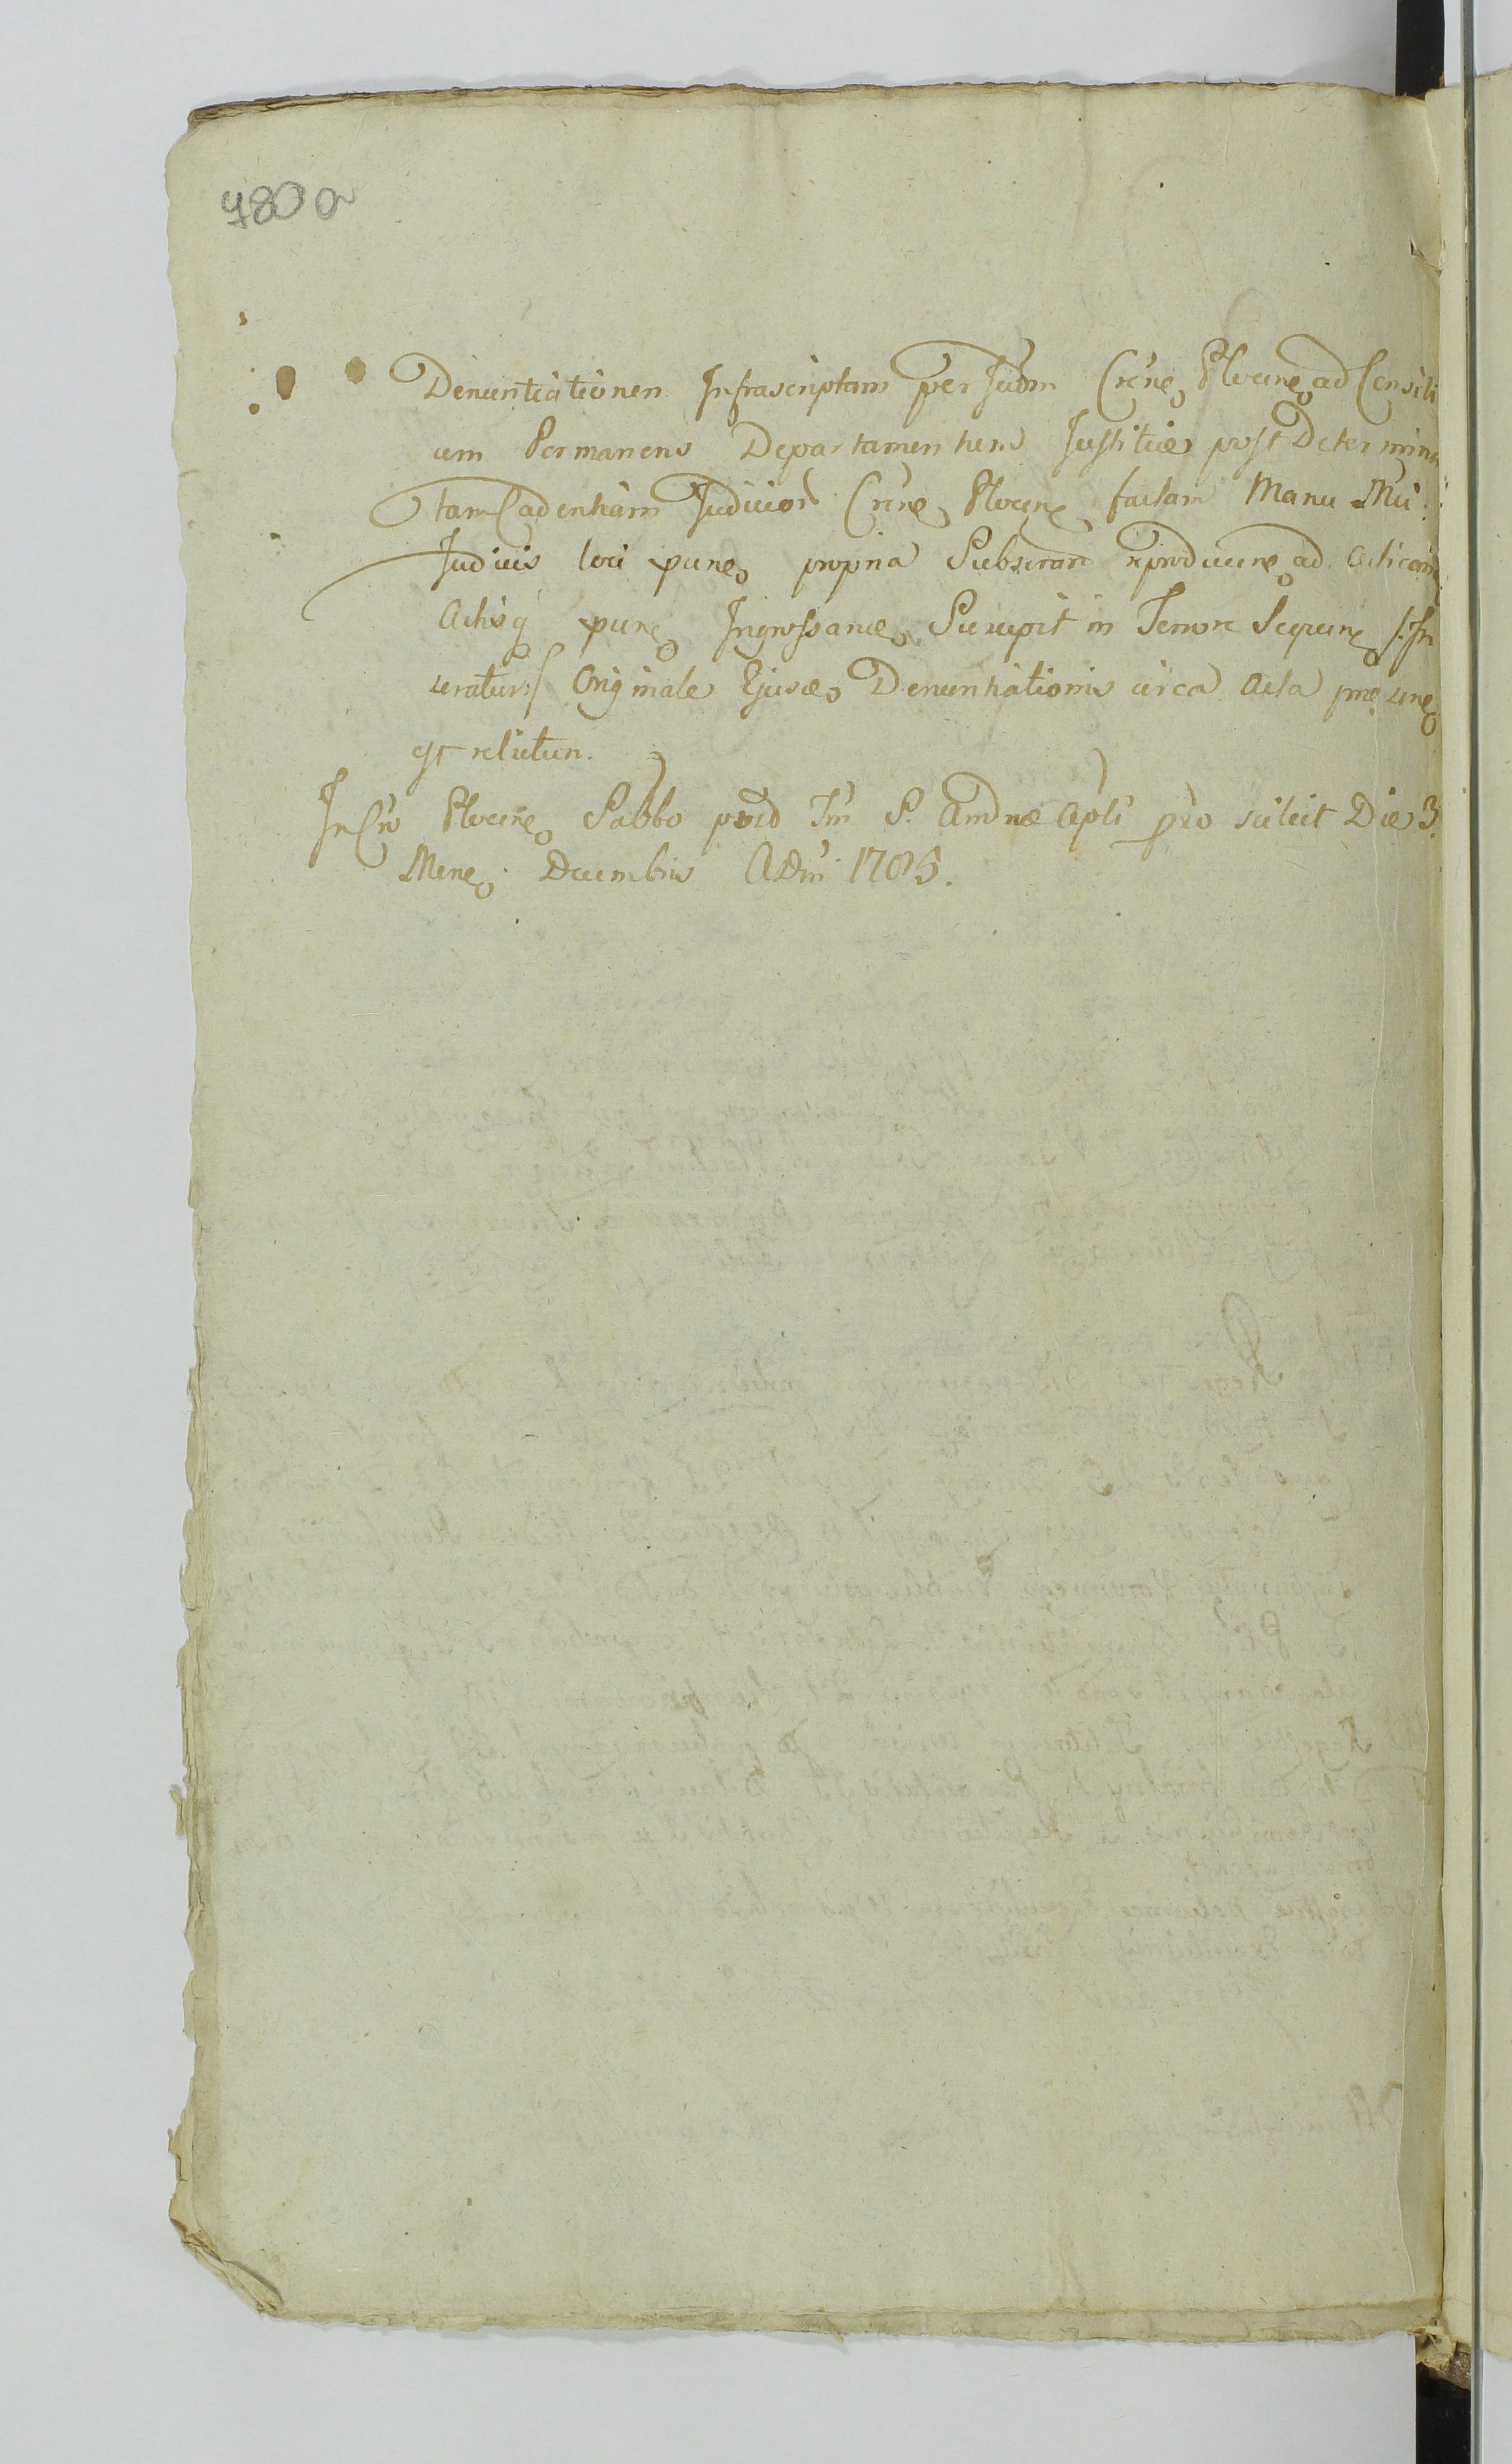 780a
Denuntiationem Infrascriptam per Judm Crene, Plocene, ad Consili
um Permanens Departamentum Justitiæ post Determina
tam Cadentiam Judicior Crene, Plocene, factam Manu Mii
Judicis loci pune, propria Subscram reproducere, ad Acticam
Actisq pune, Ingrossame, Suscepit in Tenore Sequene, /: In
seratur :/ Originale Ejusce, Denuntiationis circa Acta præsene,
est relictum.
In Cro Plocene, Sabbo post Fm S. Andreæ Apli pro scilicet Die 3.
Mene, Decembris ADni 1785.